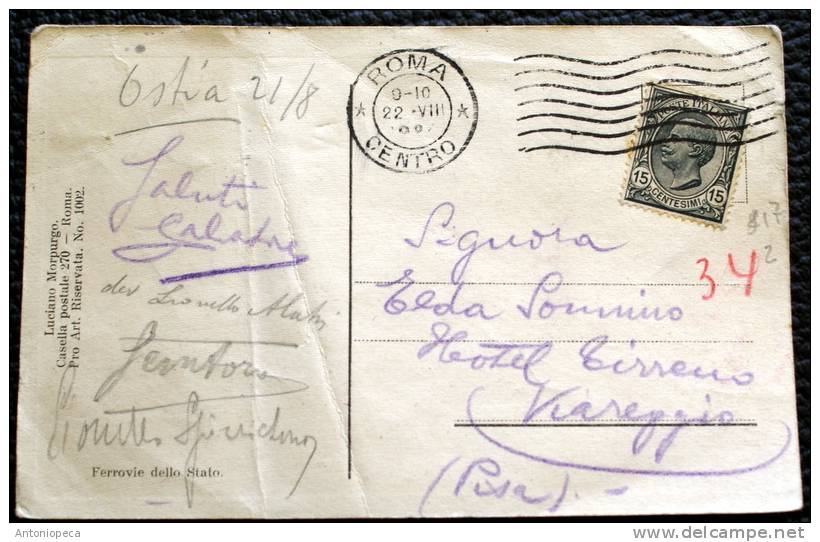 Ostia 21/8
Saluti
Luciano Morpurgo.
Casella postale 270 — Roma.
Pro Art. Riservata. No. 1002.
Ferrovie dello Stato.
ROMA
9-10
22-VIII
CENTRO
POSTE ITALIANE
15 CENTESIMI 15
Signora
Elda Sonnino
Hotel Tirreno
Viareggio
(Pisa).
34
2
Antoniopeca
www.delcampe.net